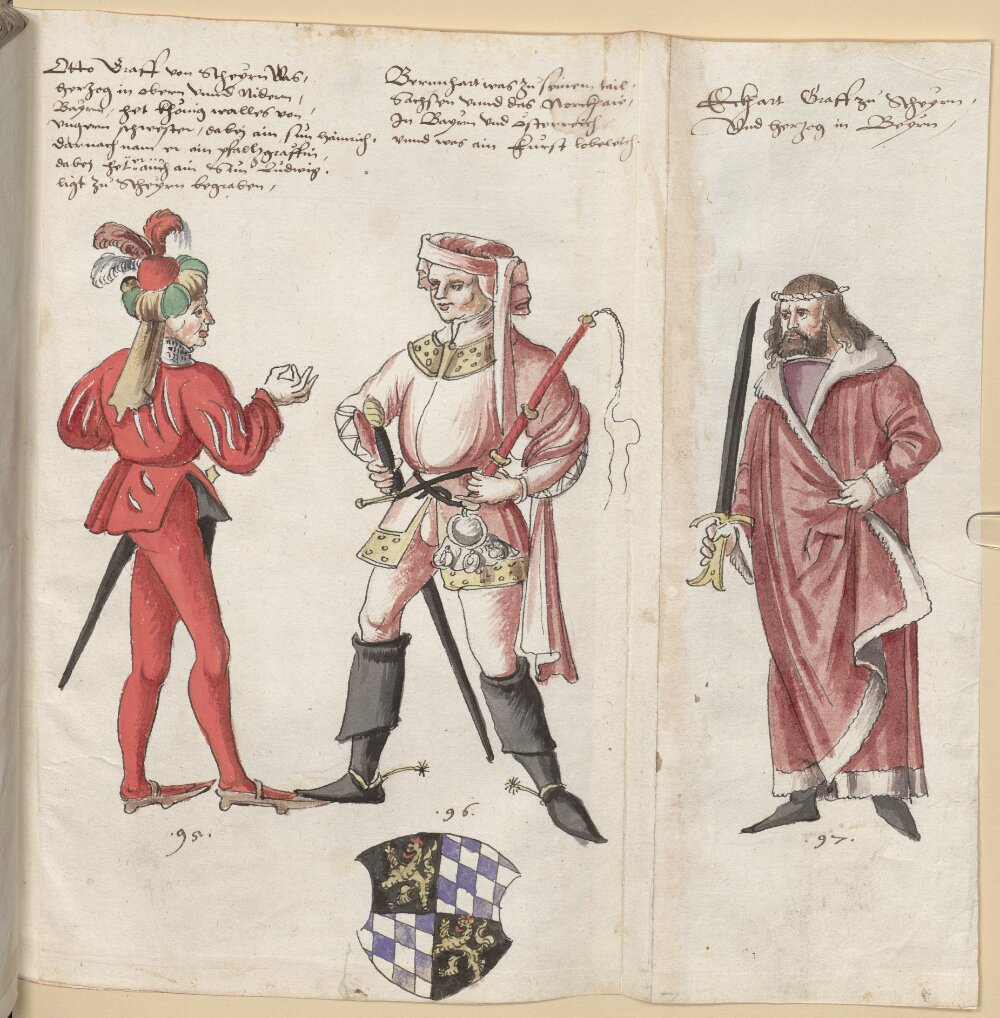 Otto Graff von Scheyrn Was,
herzog in obern vnnd Nidern,
Bayrn, het König walles von
vngern schwester, dabej ain sun hainrich.
darnach nam er ein pfallzgraffin,
dabej het er auch ain Sun Ludwig.
ligt zu Scheyrn begraben,
Bernnhart was zu seinem tail
Sachsen vnnd das Nortgaw,
In Bayrn vnd Österreich
vnnd was ain Fürst lobeleich.
Eckhart Graff zu Scheyrn,
Vnd herzog in Beyrn,
.95.
.96.
.97.